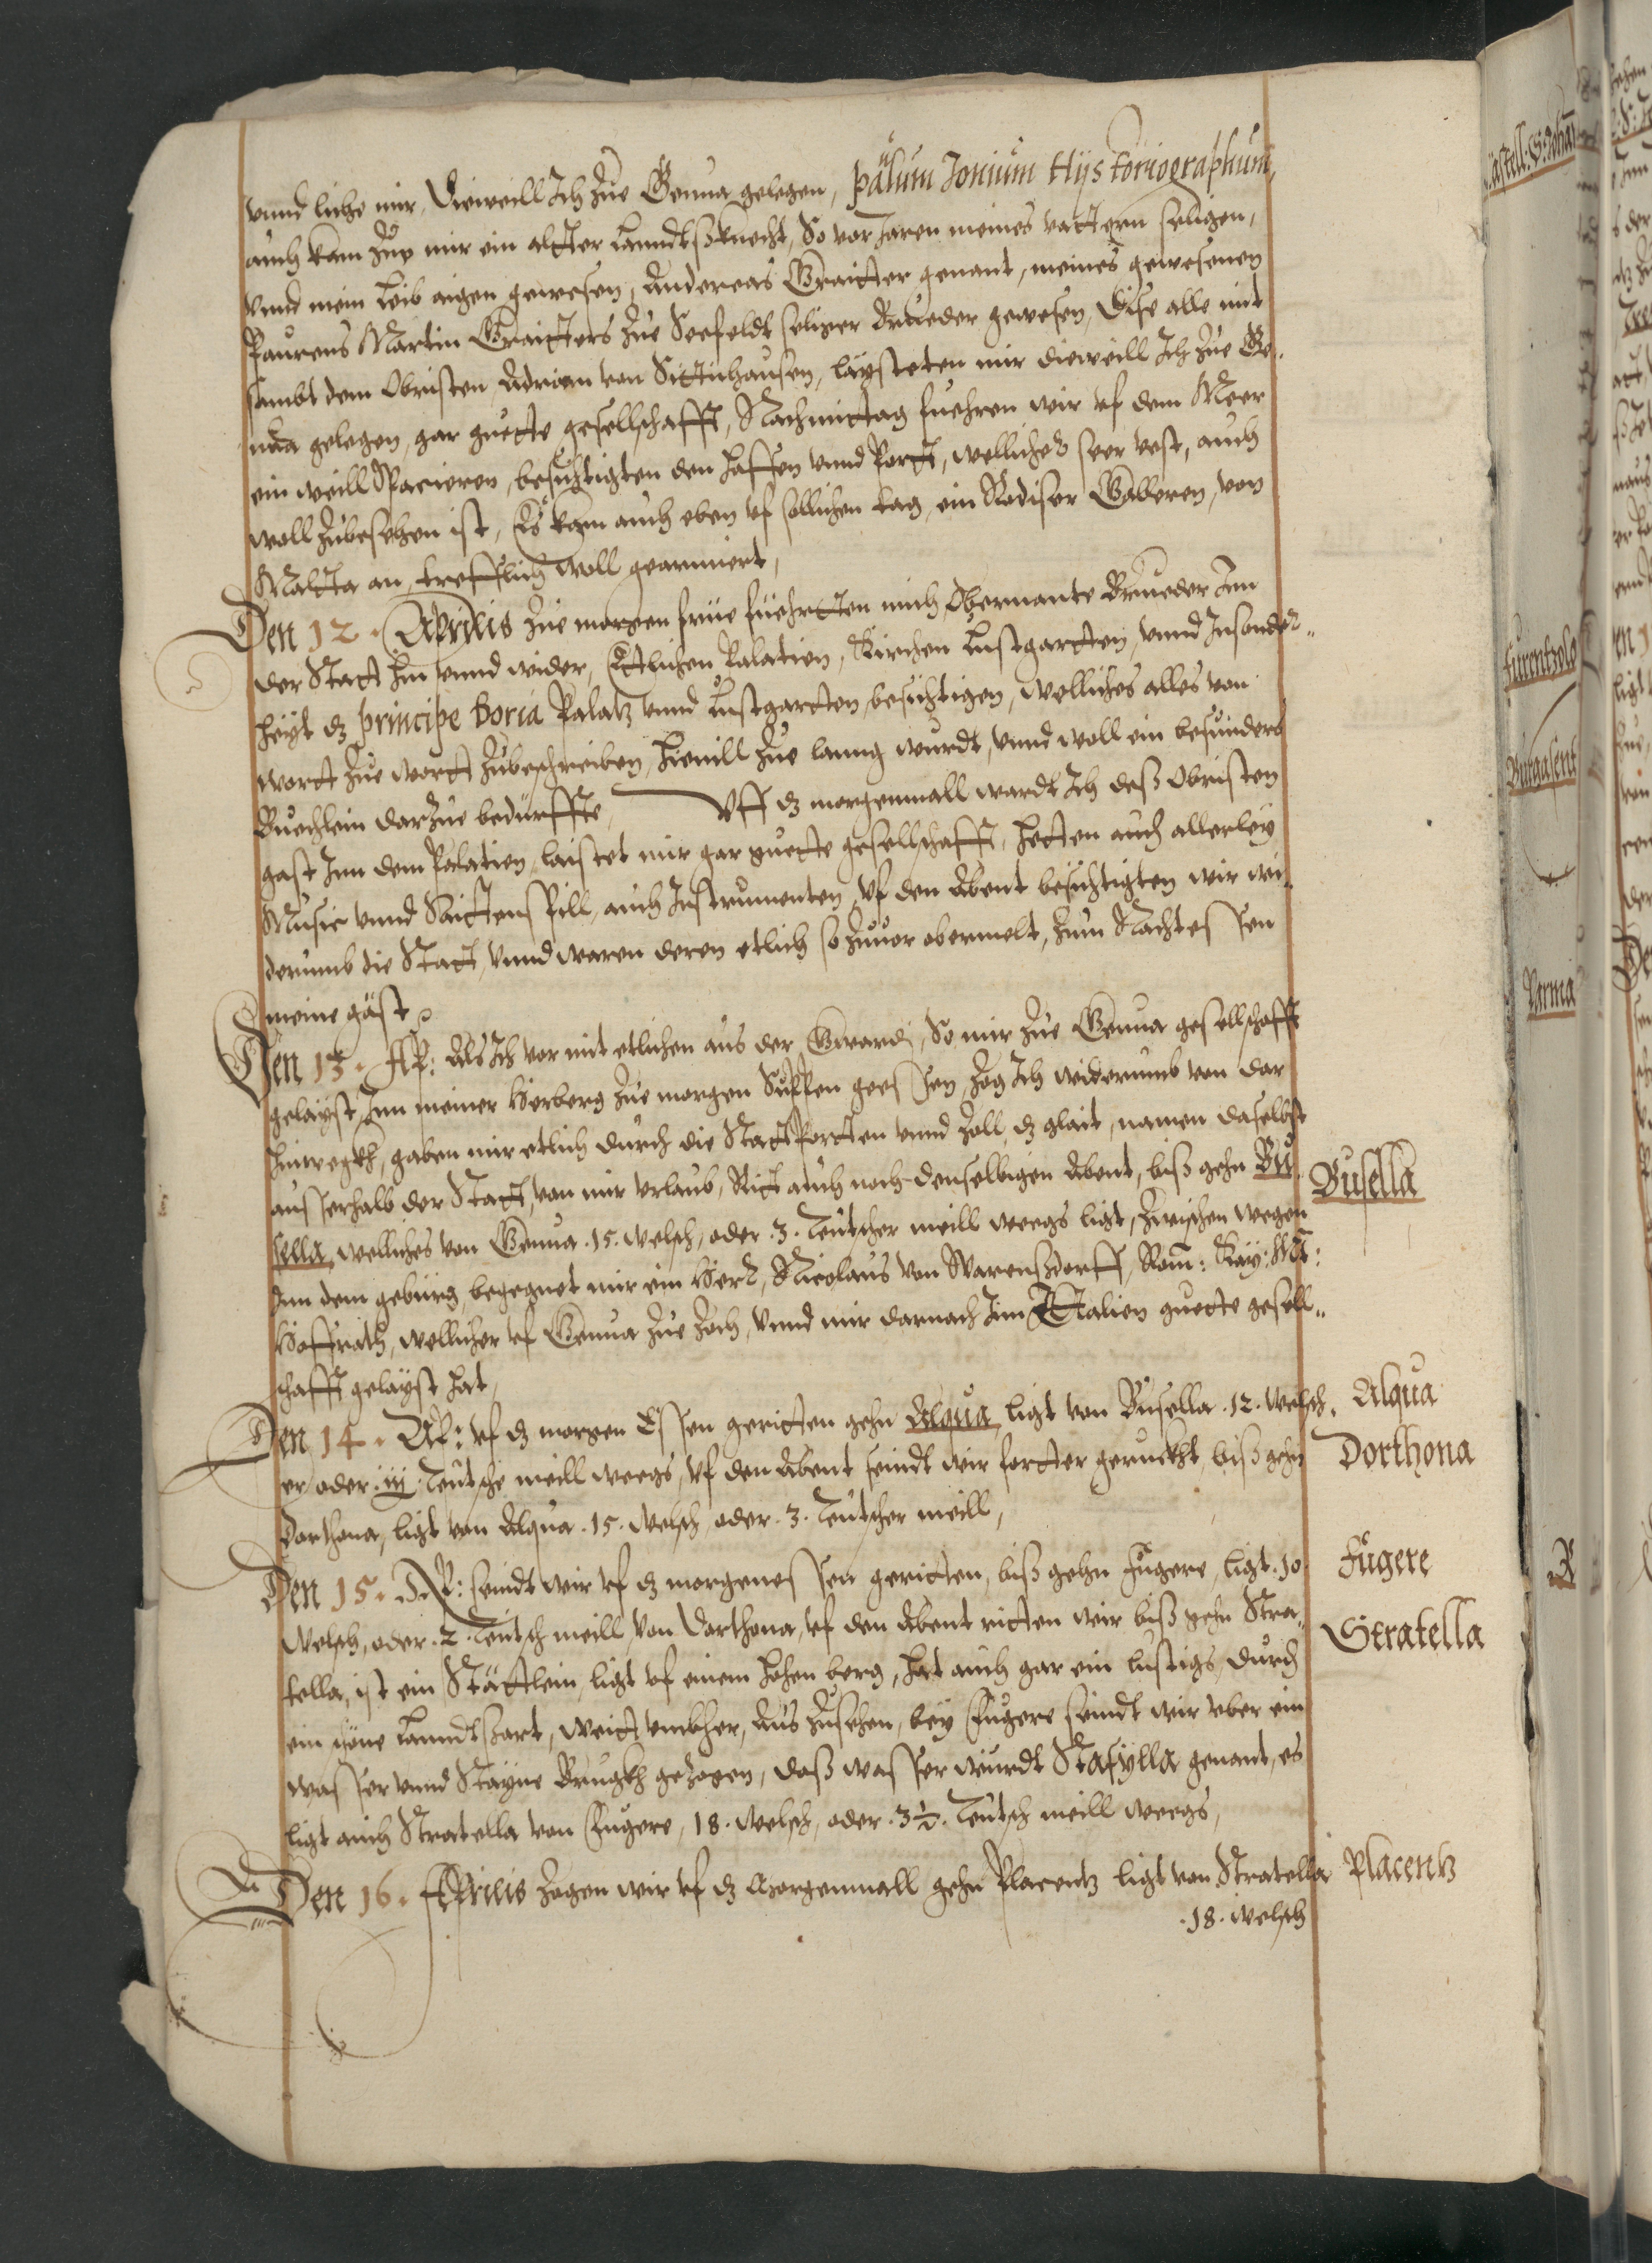 vnnd lihe mir, dieweill Ich zue Genua gelegen, päulum Jonium Hÿstoriographum,
auch kam zue mir ein allter Lanndtßknecht, So vor Jaren meines vattern seligen,
vnnd mein Leib aigen gewesen, Andereas Graitter genant, meines gewesenen
Paurens Martin Graitters zue Seefeldt seliger Brueder gewesen, dise alle mit
sambt dem Obristen Adrian von Sittinhausen, laÿsteten mir dieweill Ich zue Ge„
nŭa gelegen, gar guette gesellschafft, Nachmittag fuehren wir vf dem Meer
ein weill Spacieren, besichtigten den Haffen vnnd Port, wellicher seer vest, auch
woll zubesehen ist, Es kam auch eben vf sollichen tag, ein Rodiser Galleren, von
Maltta an, trefflich woll gearmiert,
Den 12. Aprilis zue morgen frue fuehrtten mich Obermante Brueder Inn
der Statt hin vnnd wider, Ettlichen Palatien, Kirchen Lustgartten, vnnd Insonder„
heÿt dz principe Doria Palatz vnnd Lustgartten, besichtigen, welliches alles von
wortt zue wortt zubeschreiben, hieuill zue lanng wurdt, vnnd woll ein besunders
Buechlein darzue bedurffte, Vff dz morgenmall wardt Ich deß Obristen
gast Inn dem Palatien, laistet mir gar guette gesellschafft, hetten auch allerleÿ
Music vnnd Saittenspill, auch Instrumenten, vf den Abent besichtigten wir wi„
derumb die Statt, vnnd waren deren etlich so zuuor obermelt, zum Nachtessen
meine gäst.
Den 13. Ap: Als Ich vor mit etlichen aus der Gwardj, So mir zue Genua gesellschafft
gelaÿst, Inn meiner Herberg zue morgen Suppen geessen, zog Ich widerumb von dar
hinwegkh, gaben mir etlich durch die Stattportten vnnd Zoll, dz glait, namen daselbst
ausserhalb der Statt, von mir vrlaub, Ritt auch noch denselbigen Abent, biß gehn Bu„
sella, welliches von Genua .15. welsch, oder .3. Teutscher meill weegs ligt, zwischen wegen
Inn dem gebürg, begegnet mir ein Herr, Nicolaus von Warenßdorff, Rom: Kaÿ: Mt:
Hoffrath, wellicher vf Genua zue zoch, vnnd mir darnach Inn Ittalien guette gesell„
schafft gelaÿst hat,
Den 14. Ap: vf dz morgen Essen geritten gehn Alqua, ligt von Busella .12. welsch„
er, oder iij Teutsche meill weegs, vf den Abent seindt wir fortter geruckht, biß gehn
Dorthona, ligt von Alqua .15. welsch, oder .3. Teutscher meill,
Den 15. Ap: seindt wir vf dz morgenessen geritten, biß gehn Fugere, ligt .10.
welsch, oder .2. Teutsch meill, von Dorthona, vf den Abent ritten wir biß gehn Stra„
tella, ist ein Stättlein, ligt vf einem hohen berg, hat auch gar ein lustigs, durch
ein schöne Lanndtßart, weitt vmbher, aus zusehen, beÿ Fugere seindt wir vber ein
wasser vnnd Staÿne Brugkh gezogen, daß wasser wurdt Stafÿlla genant, es
ligt auch Stratella von Fugere, 18. welsch, oder .3½. Teutsch meill weegs,
Den 16. Aprilis zogen wir vf dz Morgenmall gehn Placentz ligt von Stratella
.18. welsch
Busella
Alqua
Dorthona
Fugere
Stratella
Placentz
Furentzolo
Burgasent
Parma